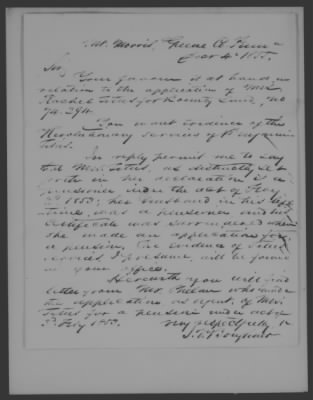 Mt. Morris, Greene Co Penn a
4th 1855.
Sir,
Your favor is at hand, in
relation to the application of Mrs
Rachel Titus for Bounty Land, No
74.294.
You want evidence of the
Revolutionary services of Benjamin
Titus.
In reply permit me to say
that Mrs Titus, as distinctly set
forth in her declaration is a
pensioner under the act of Feby
3d 1853; her husband in his life
time, was a pensioner and his
certificate was surrendered when
she made an application for
a pension, The evidence of Titus'
services I presume, will be found
in your office.
Herewith you will find
letter from Mr. Phelan who made
the application as agent, of Mrs
Titus for a pension under act of
3d Feby 1853.
Very respectfully &